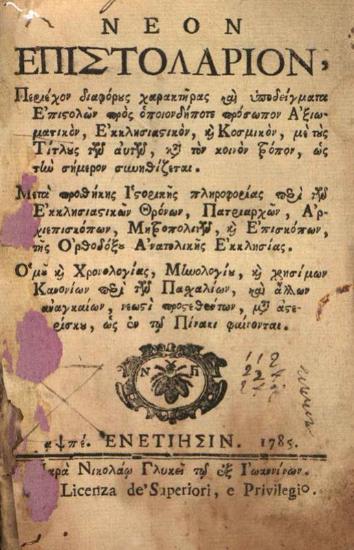 ΝΕΟΝ
ΕΠΙΣΤΟΛΑΡΙΟΝ,
Περιέχον διαφόρους χαρακτῆρας καὶ ὑποδείγματα
Ἐπιστολῶν πρὸς ὁποιονδήποτε πρόσωπον Ἀξιω-
ματικὸν, Ἐκκλησιαστικὸν, κ̀ Κοσμικὸν, μὲ τῆς
Τίτλους τῶν αὐτῶν, καὶ τὸν κοινὸν τρόπον, ὡς
τὴν σήμερον συνηθίζεται.
Μετὰ προσθήκης Ἱστορικῆς πληροφορίας περὶ τῶν
Ἐκκλησιαστικῶν Θρόνων, Πατριαρχῶν, Ἀρ-
χιεπισκόπων, Μητροπολιτῶν, κ̀ Ἐπισκόπων,
τῆς Ὀρθοδόξου Ἀνατολικῆς Ἐκκλησίας.
Ὁμοῦ κ̀ Χρονολογίας, Μηνολογίου, κ̀ χρησίμων
Κανονίων περὶ τῶν Πασχαλίων, καὶ ἄλλων
ἀναγκαίων, νεωστὶ προστεθέντων, μὲ ἀστε-
ρίσκου, ὡς ἐν τῷ Πίνακι φαίνονται.
Ν Γ
αψπέ. ΕΝΕΤΙΗΣΙΝ. 1785.
Παρὰ Νικολάῳ Γλυκεῖ τῷ ἐξ Ἰωαννίνων.
Licenza de' Superiori, e Privilegio.